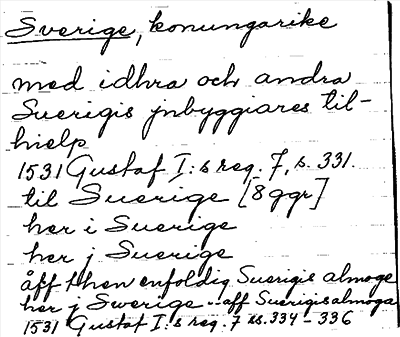 Sverige, konungarike
med idhra och andra
Suerigis jnbyggiares til-
hielp
1531 Gustaf I:s reg. 7, s. 331.
til Suerige [8 ggr]
her i Suerige
her j Suerige
åff then enfoldig Suerigis almoge
her j Swerige - aff Suerigis almoga
1531 Gustaf I:s reg. 7 ss. 334 - 336